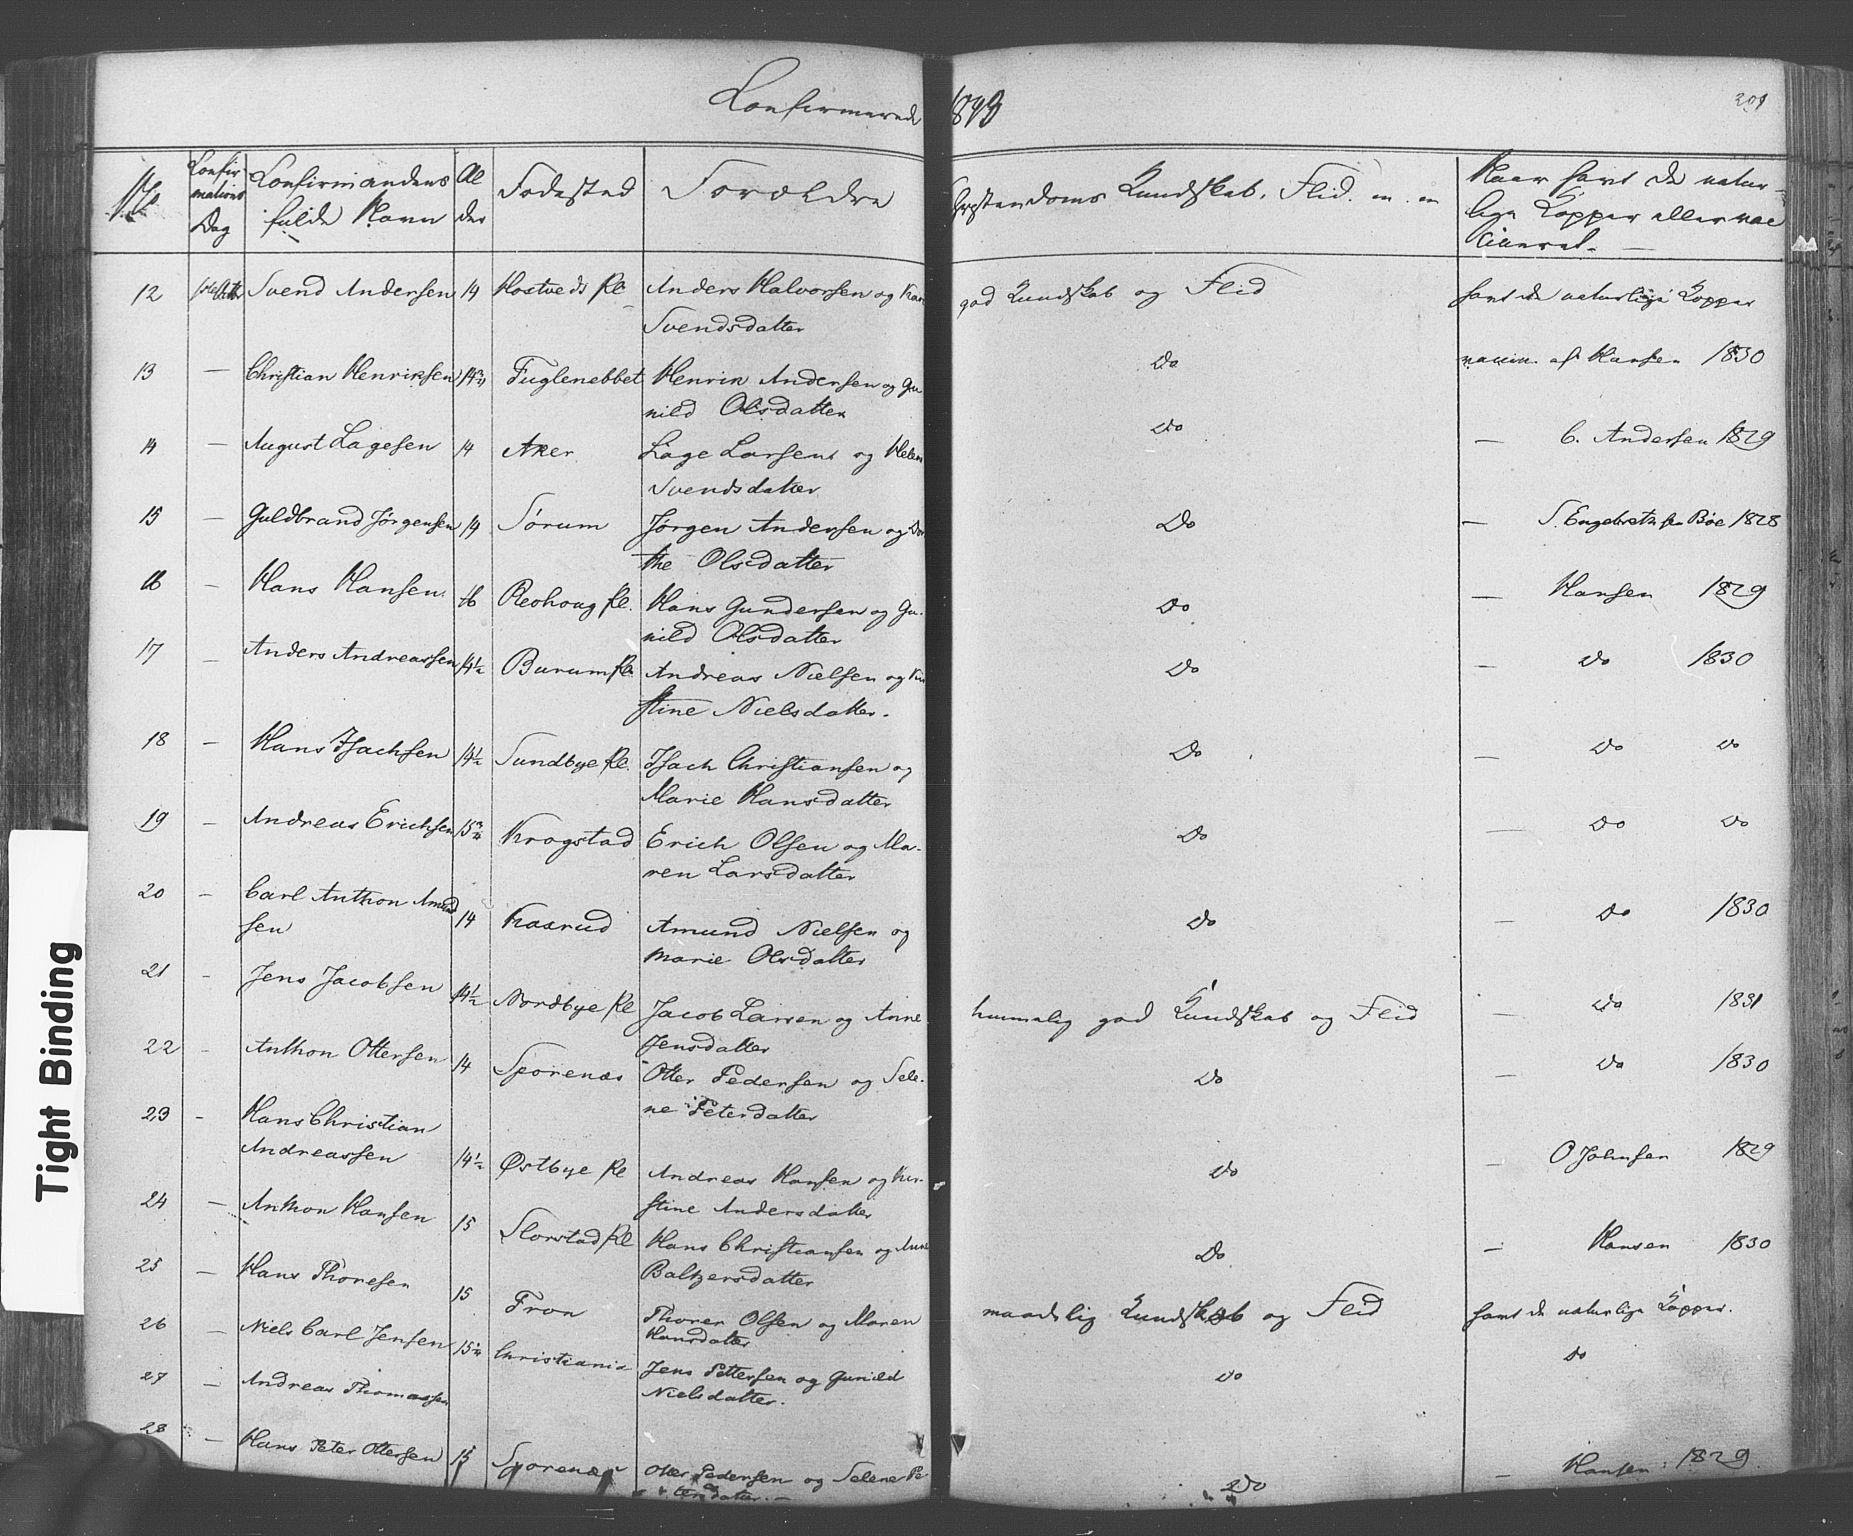 Confirmerede 1843
209
No
Confirmations Dag
Confirmandens fulde Navn
Alder
Fødested
Forældre
Christendoms Kundskab, Flid. m. m
Naar havt de naturlige Kopper eller vaccineret.
12 Svend Andersen 14 Hostveds Pl Anders Halvorsen og Kari god Kundskab og Flid havt de naturlige Kopper
Svendsdatter
13 — Christian Henriksen 14¾ Fuglenebbet Henrik Andersen og Gu Do vaccin. af Hansen 1830
nild Olsdatter
14 — August Lagesen 14 Aker Lage Larsen og Helene Do — C. Andersen 1829
Svendsdatter
15 — Guldbrand Jørgensen 14 Sørum Jørgen Andersen og Dor Do — S. Engebretsen Bøe 1828
the Olsdatter
16 — Hans Hansen 16 Reohoug Pl. Hans Gundersen og Gu- Do — Hansen 1829
nild Olsdatter
17 — Anders Andreassen 14½ Burum Pl. Andreas Nielsen og Kir Do — Do 1830
stine Nielsdatter.
18 — Hans Isachsen 14½ Sundbye Pl. Isach Christiansen og Do — Do Do
Marie Hansdatter
19 — Andreas Erichsen 15¾ Krogstad Erich Olsen og Ma- Do — Do Do
ren Larsdatter
20 — Carl Anthon Amund 14 Kaxrud Amund Nielsen og Do — Do 1830
sen Marie Olsdatter
21 — Jens Jacobsen 14½ Nordbye Pl Jacob Larsen og Anne temmelig god Kundskab og Flid — Do 1831
Jensdatter
22 — Anthon Ottersen 14 Sporenæs Otter Pedersen og Sele- Do — Do 1830
ne Petersdatter
23 — Hans Christian
Andreassen 14½ Østbye Pl Andreas Hansen og Kir- Do — O Johnsen 1829
stine Andersdatter
24 — Anthon Hansen 15 Storstad Pl Hans Christiansen og Anne Do — Hansen 1830
Baltzersdatter
25 — Hans Thoresen 15 Fron Thorer Olsen og Maren maadelig Kundskab og Flid havt de naturlige Kopper.
Hansdatter
26 — Niels Carl Jensen 15¼ Christiania Jens Pettersen og Gunild Do Do
Nielsdatter.
27 — Andreas Thomassen
28 — Hans Peter Ottersen 15 Sporenæs Otter Pedersen og Selene Pe Do — Hansen 1829
tersdatter. —
Tight Binding